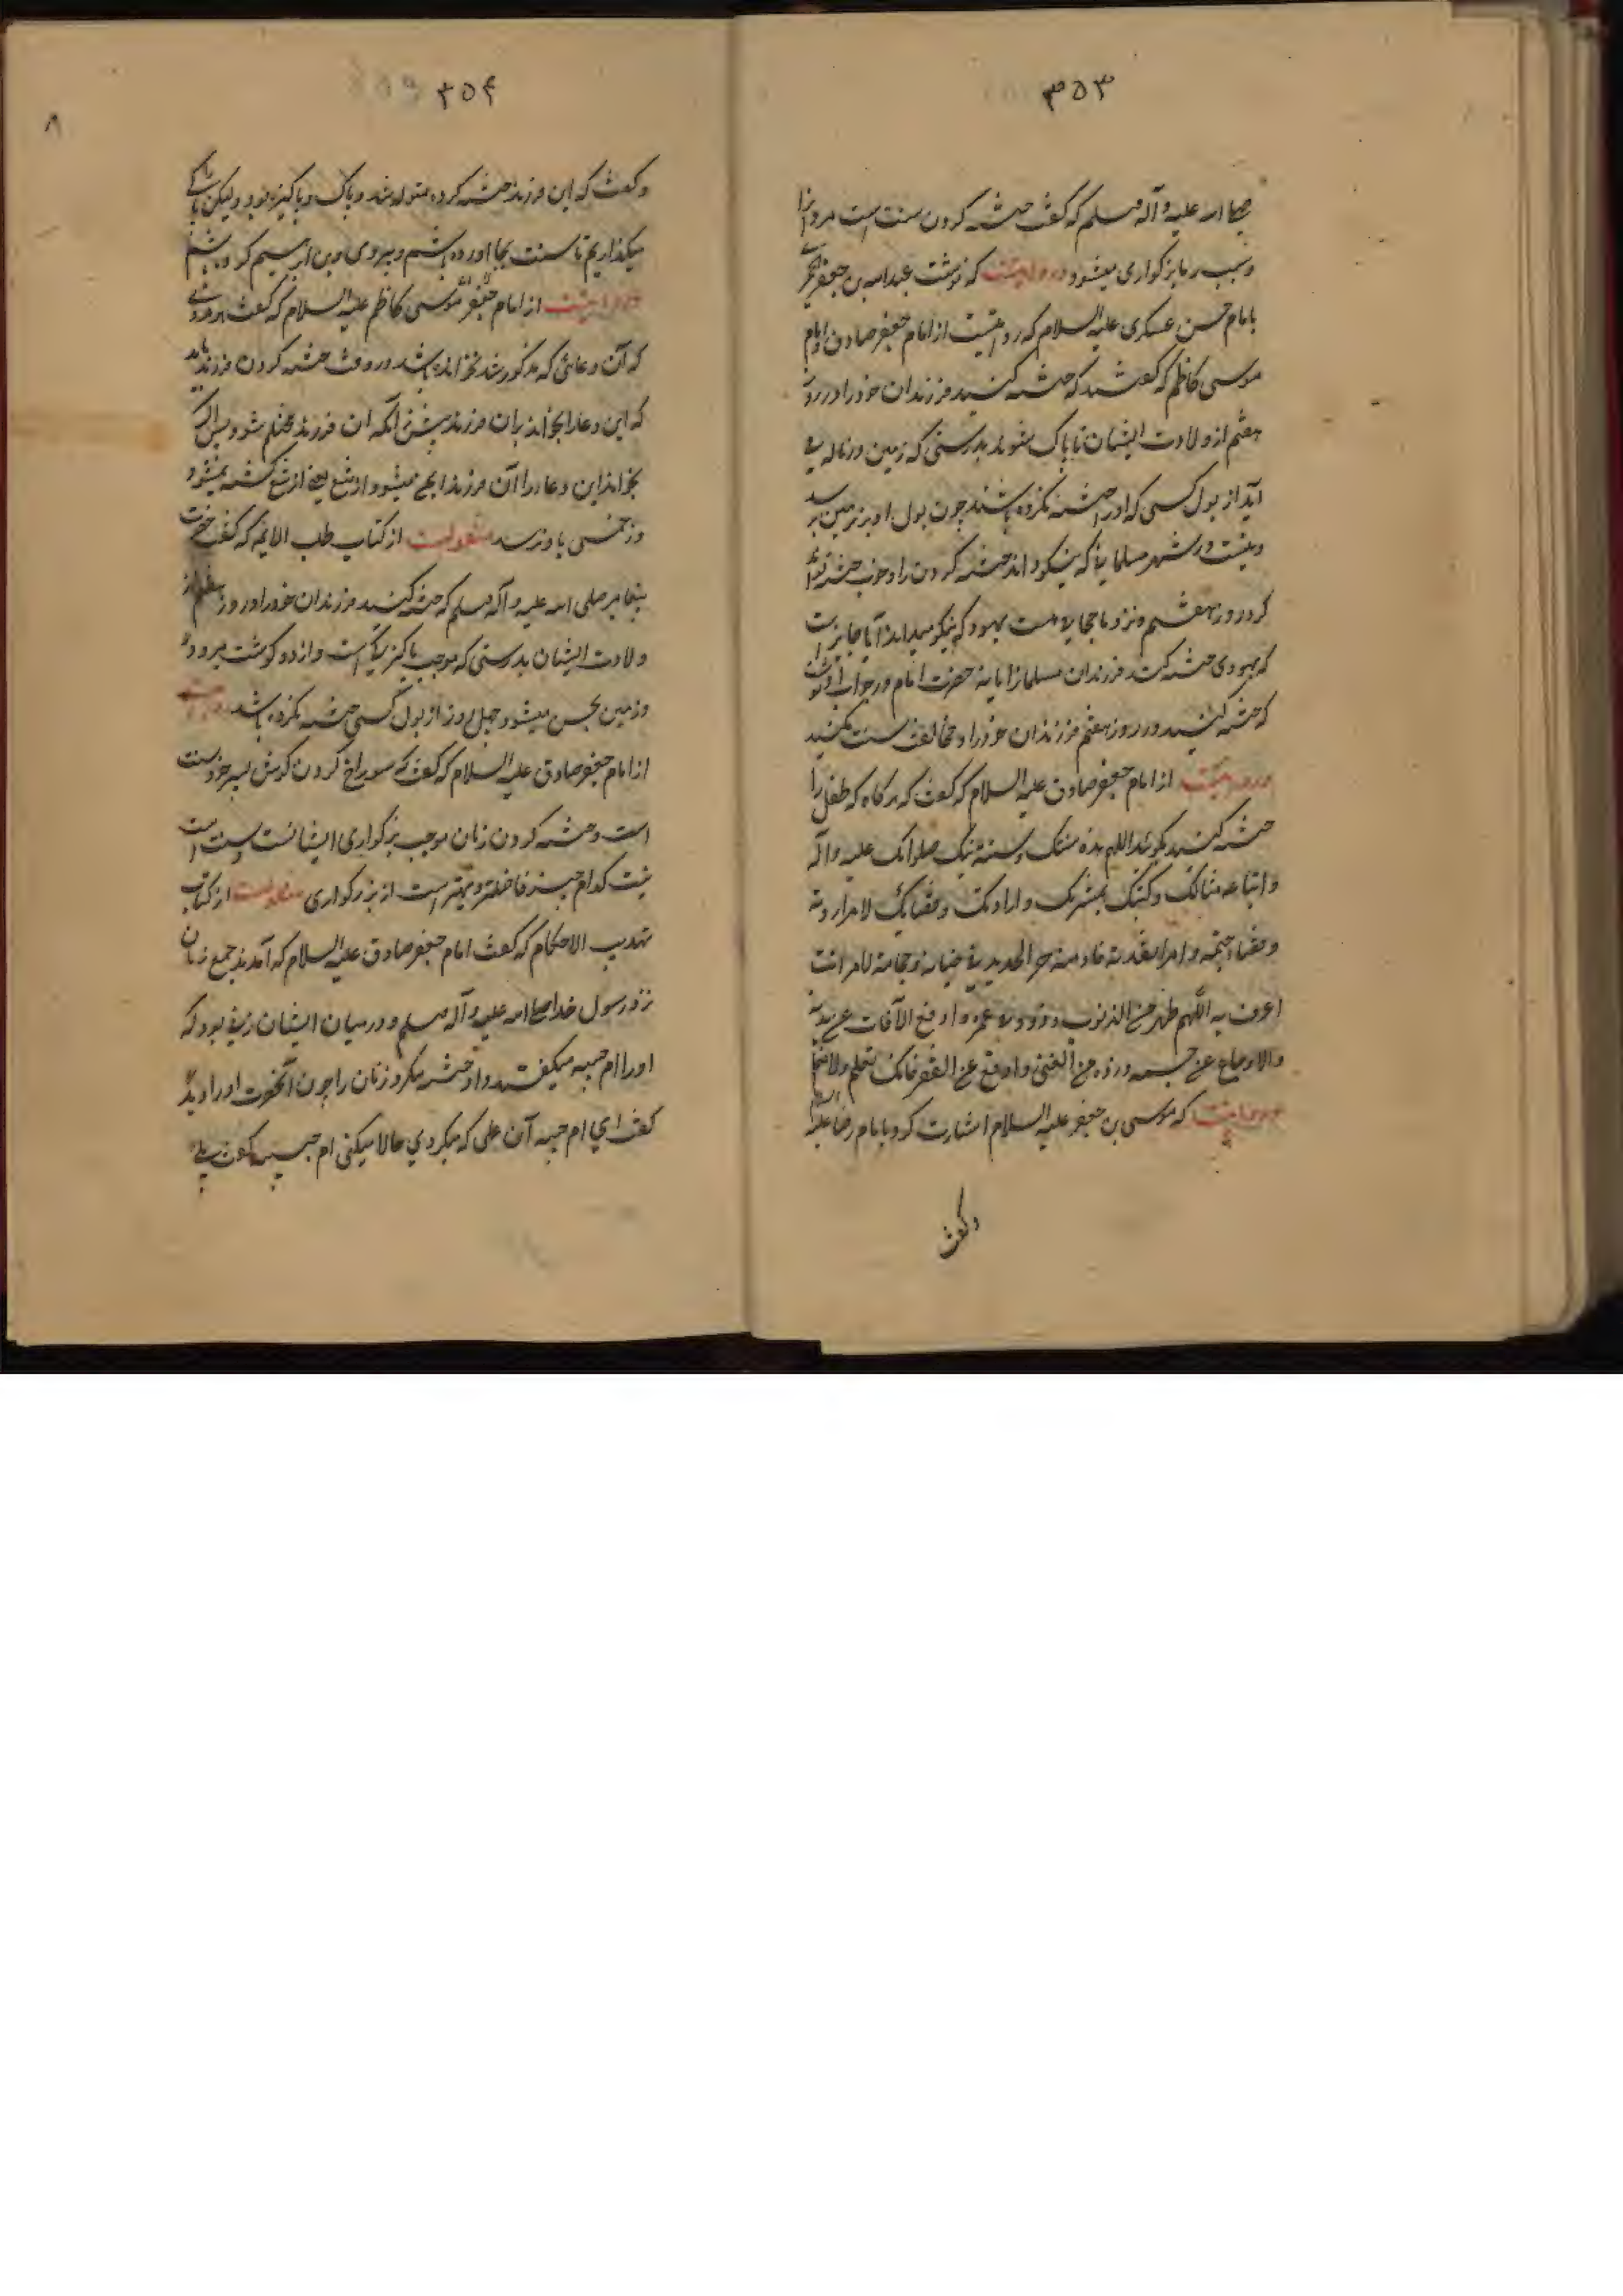 ۳۵۳
صلی الله علیه و آله وسلم که گفت ختنه کردن سنت است مردانرا
و سبب بزرگواری میشود و در روایتست که نوشت عبدالله بن جعفر
بامام حسن عسکری علیه السلام که روایتست از امام جعفر صادق و امام
موسی کاظم که گفتند که ختنه کنید فرزندان خود را در روز
هفتم از ولادت ایشان تا پاک شوند بدرستی که زمین در ناله می
آید از بول کسی که او را ختنه نکرده باشند چون بول او بر زمین رسد
و نیست در شهر مسلمانی که نیکو داند ختنه کردن را و خوب ختنه تواند
کرد در روز هفتم و نزد ما حجام هست یهود که نیکو میداند آیا جایز است
که یهودی ختنه کند فرزندان مسلمانرا یا نه حضرت امام در جواب او نوشت
که ختنه کنید در روز هفتم فرزندان خود را و مخالفت سنت مکنید
و روایتست از امام جعفر صادق علیه السلام که گفت که هرگاه که طفل را
ختنه کنید بگوئید اللهم هذه سنتک و سنة نبیک صلواتک علیه و آله
و اتباع مثالک و کتبک بمشیتک و ارادتک و قضائک لامر اردته
و قضاء حتمته و امر انفذته فاذقته حر الحدید فی ختانه و حجامته لامر انت
اعرف به اللهم طهره من الذنوب و زد فی عمره و ادفع الآفات عن بدنه
والاوجاع عن جسمه و زده من الغنی و ادفع عنه الفقر فانک تعلم ولا نعلم
و روایتست که موسی بن جعفر علیه السلام اشارت کرد بامام رضا علیه السلام
و گفت
۳۵۴
و گفت که این فرزند ختنه کرده متولد شد و پاک و پاکیزه بود ولیکن
میگذاریم تا سنت بجا آورده باشیم و پیروی دین ابراهیم کرده باشیم
و روایتست از امام موسی کاظم علیه السلام که گفت هر مردی
که آن دعائی که مذکور شد نخوانده باشد در وقت ختنه کردن فرزند باید
که این دعا را بخواند بر آن فرزند پیش از آنکه آن فرزند محتلم شود پس اگر
بخواند این دعا را آن فرزند ایمن میشود از تیغ یعنی از تیغ کشته نمیشود
و زخمی باو نرسد منقولست از کتاب طب الائمه که گفت حضرت
پیغامبر صلی الله علیه و آله وسلم که ختنه کنید فرزندان خود را در روز هفتم از
ولادت ایشان بدرستی که موجب پاکیزگیست و از او گوشت میروید
و زمین نجس میشود چهل روز از بول کسی که ختنه نکرده باشد و روایتست
از امام جعفر صادق علیه السلام که گفت که سوراخ کردن گوش پسر خود سنت
است و ختنه کردن زنان موجب بزرگواری ایشانست و سنت
نیست کدام چیز فاضلتر و بهتر است از بزرگواری منقولست از کتاب
تهذیب الاحکام که گفت امام جعفر صادق علیه السلام که آمدند جمع زنان
نزد رسول خدا صلی الله علیه و آله وسلم و در میان ایشان زنی بود که
او را ام حبیبه میگفتند و او ختنه میکرد زنان را چون آنحضرت او را دید
گفت ای ام حبیبه آن عملی که میکردی حالا میکنی ام حبیبه گفت بلی